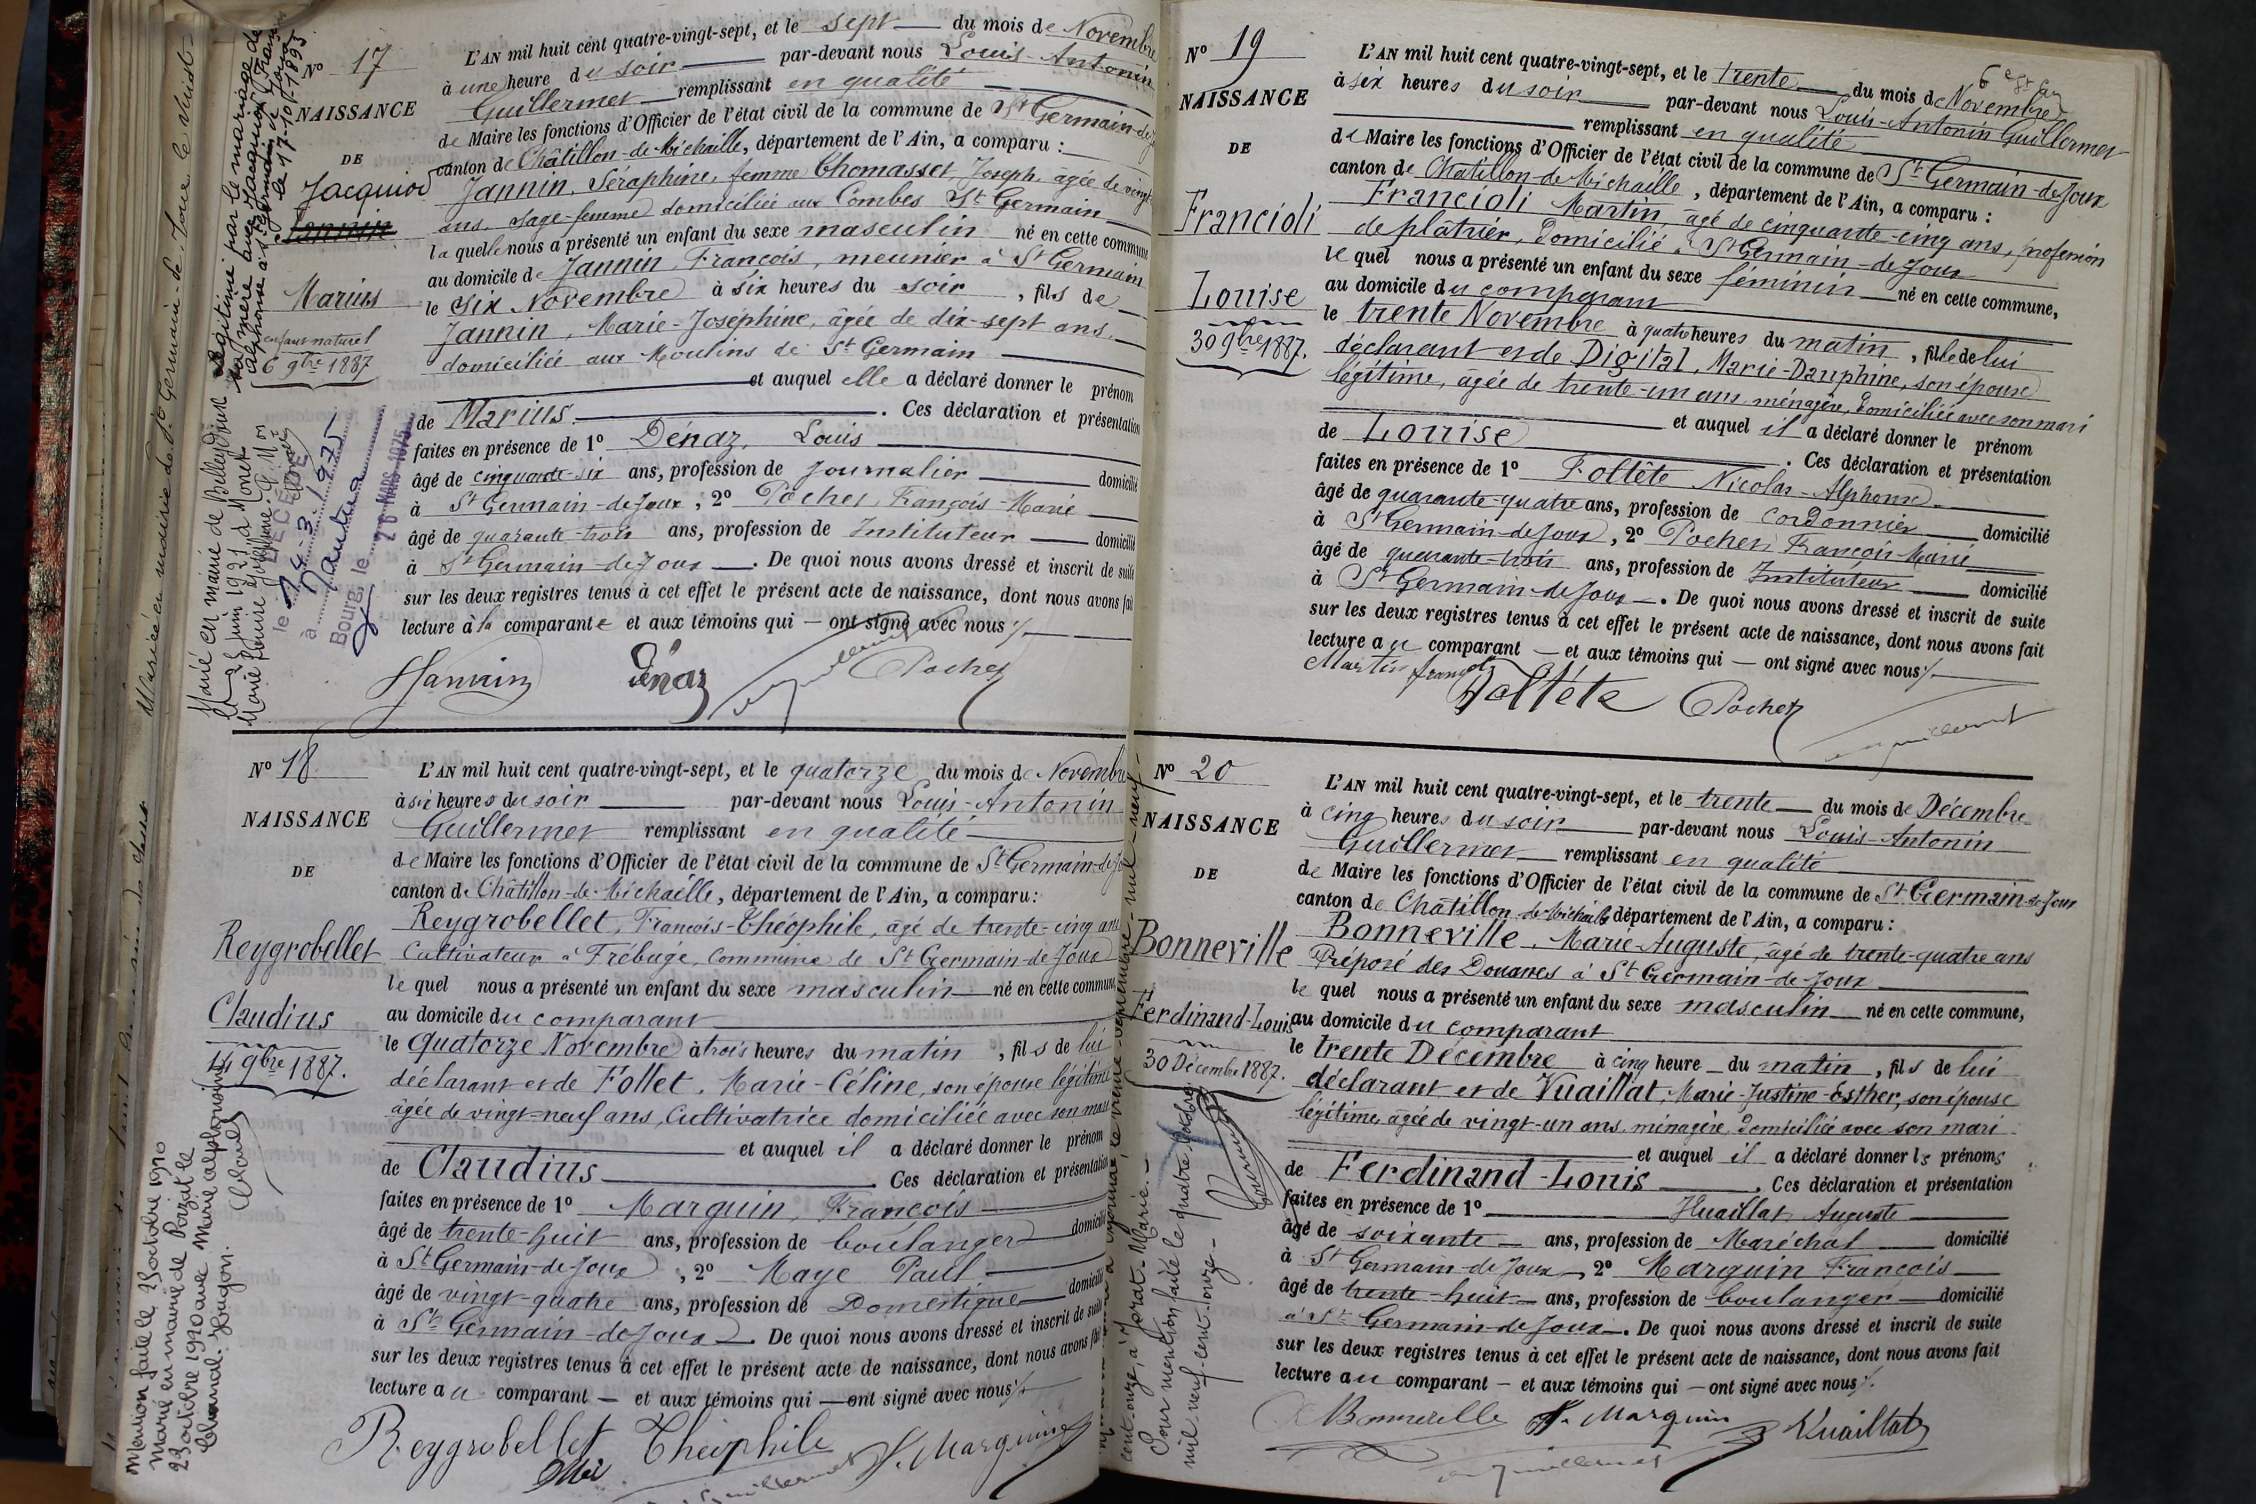 N° 17
NAISSANCE
DE
Jacquiod
Jannin
Marius
enfant naturel
6 9bre 1887
L'AN mil huit cent quatre-vingt-sept, et le sept du mois de Novembre
à une heure du soir par-devant nous Louis-Antonin
Guillermet remplissant en qualité
de Maire les fonctions d'Officier de l'état civil de la commune de St Germain-de-J
canton de Châtillon-de-Michaille, département de l'Ain, a comparu :
Jannin, Séraphine, femme Thomasset, Joseph, agée de vingt
ans, sage-femme domiciliée aux Combes St Germain
la quelle nous a présenté un enfant du sexe masculin né en cette commune
au domicile de Jannin, François, meunier à St Germain
le Six Novembre à six heures du soir, fils de
Jannin, Marie-Joséphine, âgée de dix-sept ans,
domiciliée aux Moulins de St Germain
et auquel elle a déclaré donner le prénom
de Marius. Ces déclaration et présentation
faites en présence de 1° Dénaz, Louis
âgé de cinquante-six ans, profession de journalier domicilié
à St Germain-de-Joux, 2° Pochet, François-Marie
âgé de quarante-trois ans, profession de Instituteur domicilié
à St Germain-de-Joux. De quoi nous avons dressé et inscrit de suite
sur les deux registres tenus à cet effet le présent acte de naissance, dont nous avons fait
lecture à la comparante et aux témoins qui — ont signé avec nous
Jannin Dénaz Pochet
légitimé par le mariage de
sa mère avec Jacquiod François
Alphonse à St Germain de Joux
le 17-10-1893
Marié en mairie de
le 25 juin 1921 à
Marie
DÉCÉDÉ
le 14-3-1975
à Nantua
Bourg, le 20 MARS 1975
N° 18
NAISSANCE
DE
Reygrobellet
Claudius
14 9bre 1887.
L'AN mil huit cent quatre-vingt-sept, et le quatorze du mois de Novembre
à six heures du soir par-devant nous Louis-Antonin
Guillermet remplissant en qualité
de Maire les fonctions d'Officier de l'état civil de la commune de St Germain-de-Jo
canton de Châtillon-de-Michaille, département de l'Ain, a comparu :
Reygrobellet, François-Théophile, âgé de trente-cinq ans
Cultivateur à Frébuge, commune de St Germain-de-Joux
le quel nous a présenté un enfant du sexe masculin né en cette commune
au domicile du comparant
le Quatorze Novembre à trois heures du matin, fils de lui
déclarant et de Follet, Marie-Céline, son épouse légitime
âgée de vingt-neuf ans, Cultivatrice domiciliée avec son mari
et auquel il a déclaré donner le prénom
de Claudius. Ces déclaration et présentation
faites en présence de 1° Marquin, François
âgé de trente-huit ans, profession de boulanger domicilié
à St Germain-de-Joux, 2° Maye Paul
âgé de vingt-quatre ans, profession de Domestique domicilié
à St Germain-de-Joux. De quoi nous avons dressé et inscrit de suite
sur les deux registres tenus à cet effet le présent acte de naissance, dont nous avons fait
lecture au comparant — et aux témoins qui — ont signé avec nous
Reygrobellet Théophile F. Marquin
Guillermet
Mention faite le 25 octobre 1910
Marié en mairie de le
23 octobre 1910 avec Marie
N° 19
NAISSANCE
DE
Francioli
Louise
30 9bre 1887.
L'AN mil huit cent quatre-vingt-sept, et le trente du mois de Novembre
à six heures du soir par-devant nous Louis-Antonin Guillermet
remplissant en qualité
de Maire les fonctions d'Officier de l'état civil de la commune de St Germain-de-Joux
canton de Châtillon-de-Michaille, département de l'Ain, a comparu :
Francioli Martin, âgé de cinquante-cinq ans, profession
de plâtrier, domicilié à St Germain-de-Joux
le quel nous a présenté un enfant du sexe féminin né en cette commune,
au domicile du comparant
le trente Novembre à quatre heures du matin, fille de lui
déclarant et de Digital, Marie-Dauphine, son épouse
légitime, âgée de trente-un ans ménagère, domiciliée avec son mari
et auquel il a déclaré donner le prénom
de Louise. Ces déclaration et présentation
faites en présence de 1° Foltête Nicolas-Alphonse
âgé de quarante-quatre ans, profession de cordonnier domicilié
à St Germain-de-Joux, 2° Pochet François-Marie
âgé de quarante-trois ans, profession de Instituteur domicilié
à St Germain-de-Joux. De quoi nous avons dressé et inscrit de suite
sur les deux registres tenus à cet effet le présent acte de naissance, dont nous avons fait
lecture au comparant — et aux témoins qui — ont signé avec nous
Foltête Pochet
N° 20
NAISSANCE
DE
Bonneville
Ferdinand-Louis
30 Décembre 1887.
L'AN mil huit cent quatre-vingt-sept, et le trente du mois de Décembre
à cinq heures du soir par-devant nous Louis-Antonin
Guillermet remplissant en qualité
de Maire les fonctions d'Officier de l'état civil de la commune de St Germain-de-Joux
canton de Châtillon-de-Michaille département de l'Ain, a comparu :
Bonneville, Marie-Auguste, âgé de trente-quatre ans
Préposé des Douanes à St Germain-de-Joux
le quel nous a présenté un enfant du sexe masculin né en cette commune,
au domicile du comparant
le trente Décembre à cinq heure du matin, fils de lui
déclarant et de Vuaillat, Marie-Justine-Esther, son épouse
légitime, âgée de vingt-un ans, ménagère, domiciliée avec son mari
et auquel il a déclaré donner ls prénoms
de Ferdinand-Louis. Ces déclaration et présentation
faites en présence de 1° Vuaillat, Auguste
âgé de soixante ans, profession de Maréchal domicilié
à St Germain-de-Joux, 2° Marquin François
âgé de trente-huit ans, profession de boulanger domicilié
à St Germain-de-Joux. De quoi nous avons dressé et inscrit de suite
sur les deux registres tenus à cet effet le présent acte de naissance, dont nous avons fait
lecture au comparant — et aux témoins qui — ont signé avec nous
Bonneville F. Marquin Vuaillat
Guillermet
Pour mention faite le quatre
mil neuf-cent-onze.